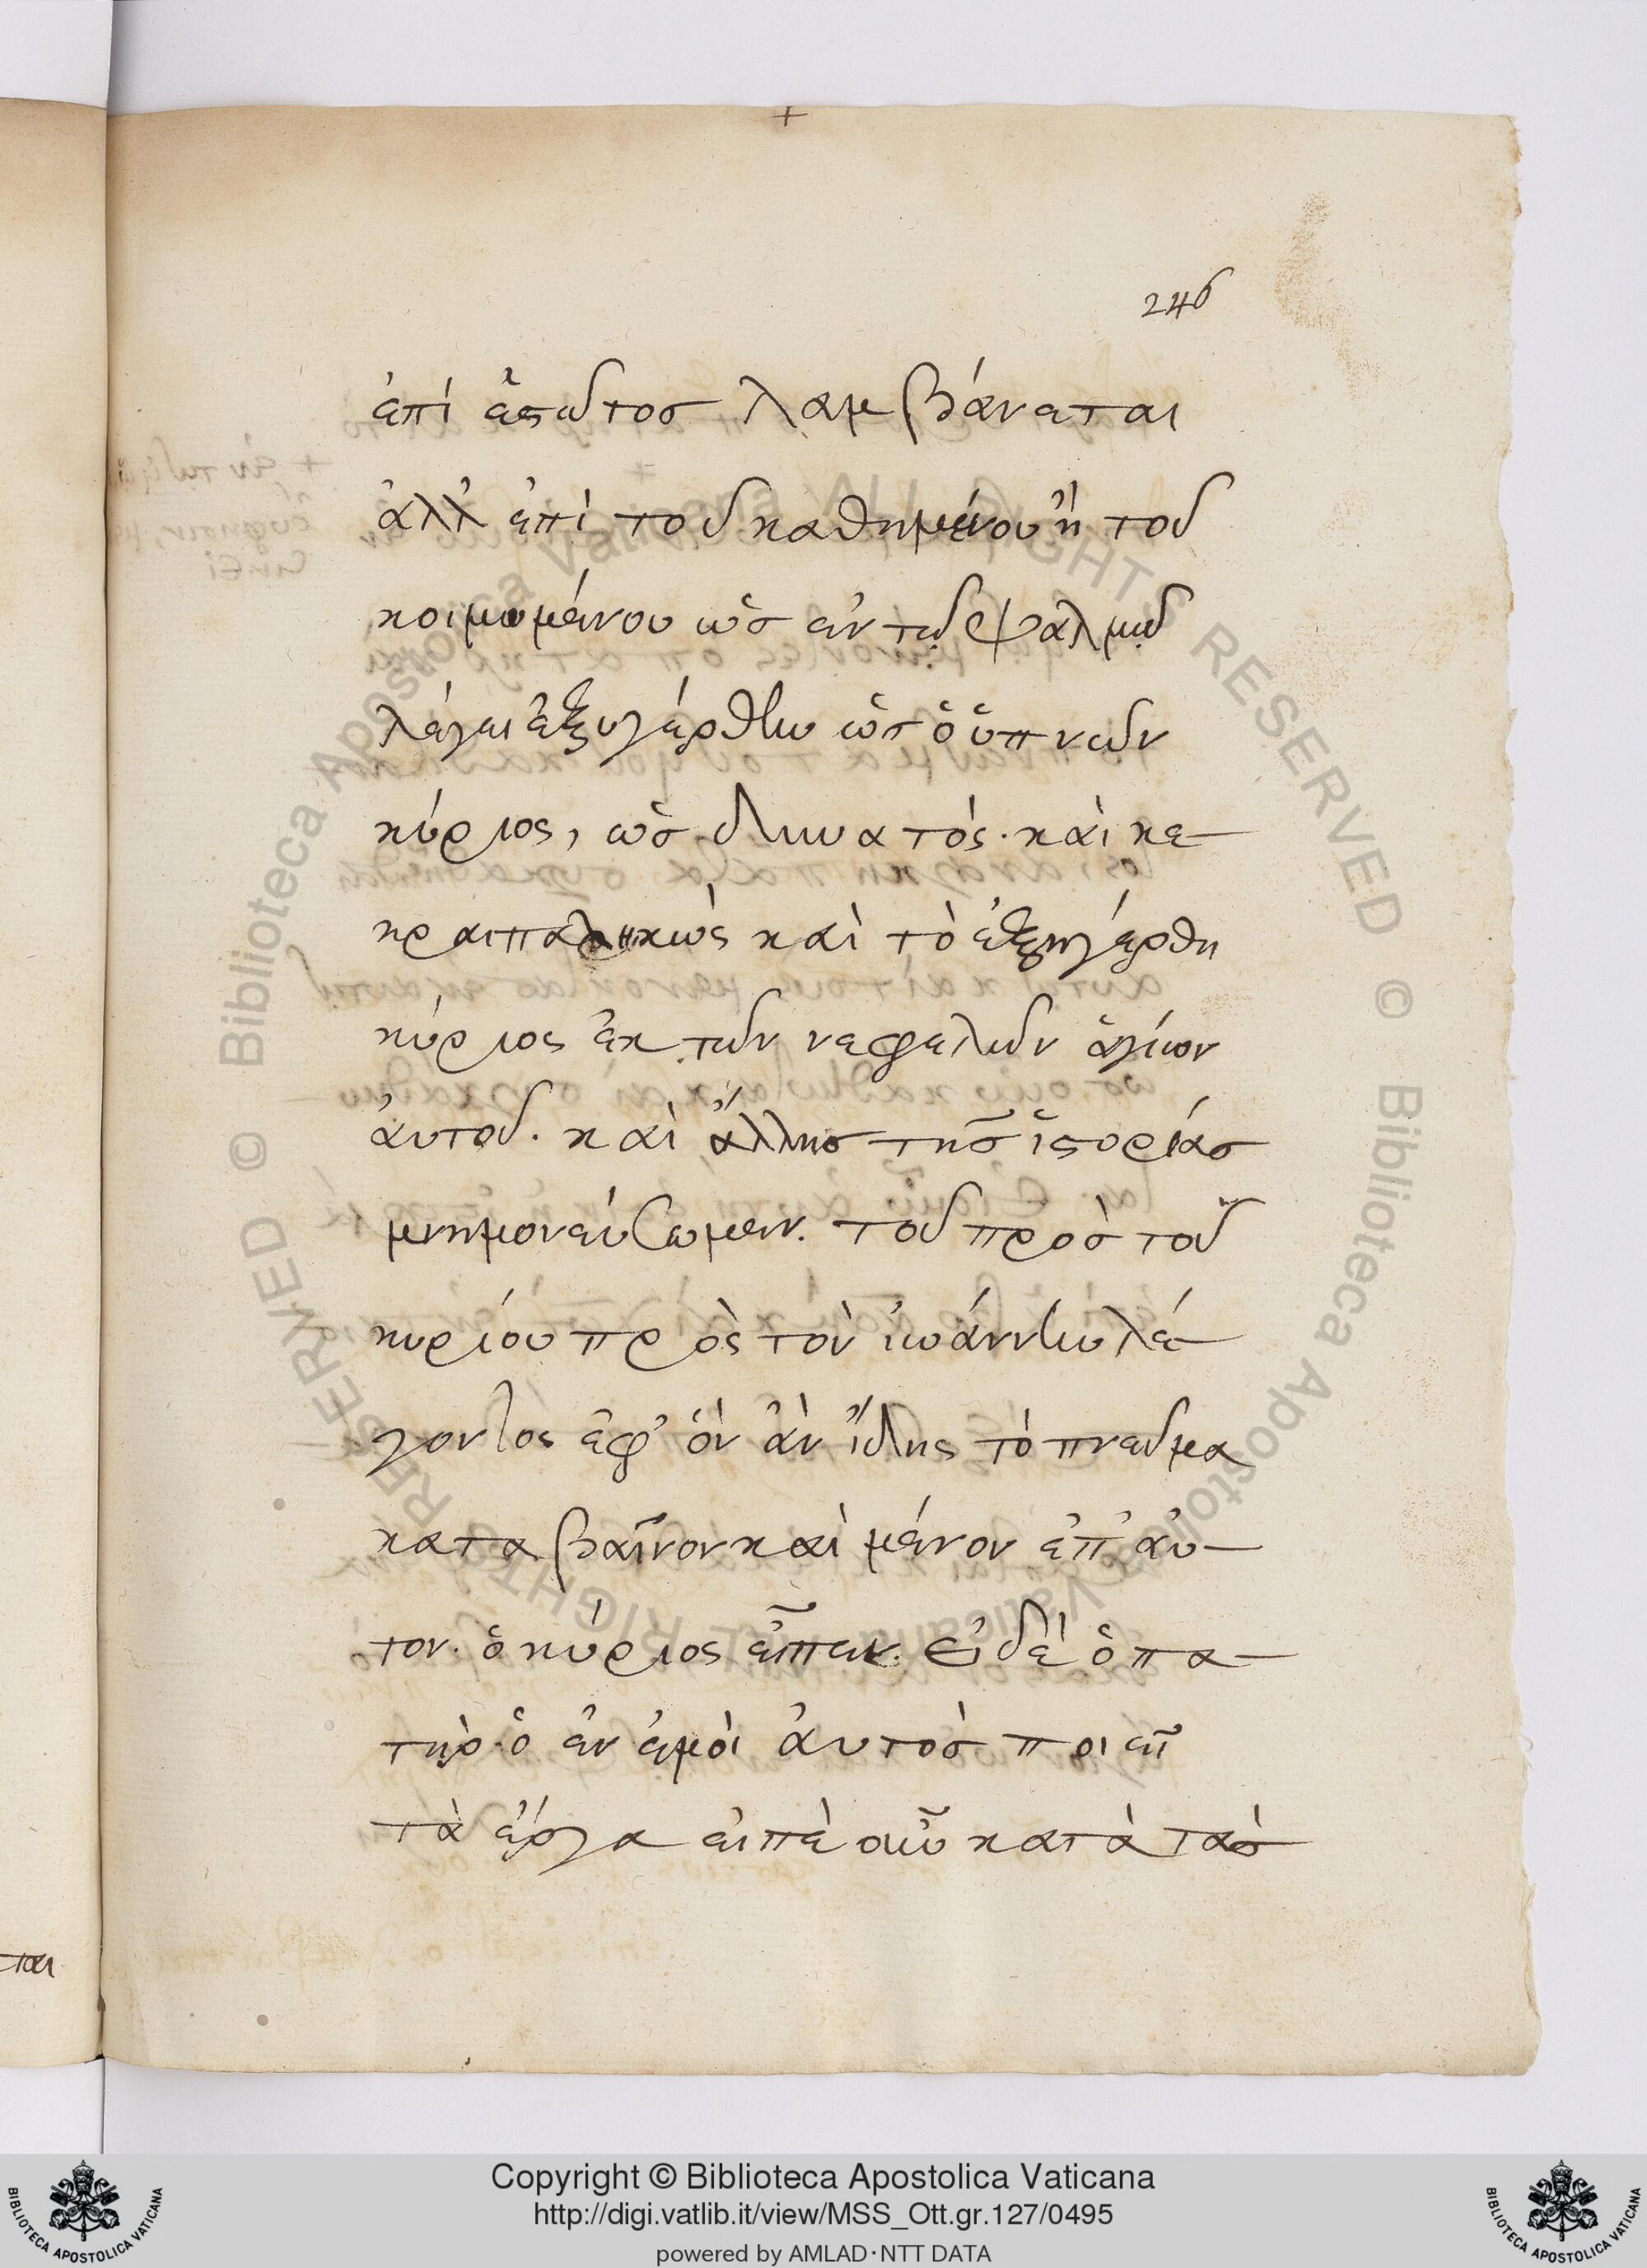 246
ἐπὶ ἑστῶτος λαμβάνεται
ἀλλ' ἐπὶ τοῦ καθημένου ἢ τοῦ
κοιμωμένου ὡς ἐν τῷ ψαλμῷ
λέγει ἐξηγέρθην ὡς ὁ ὑπνῶν
κύριος, ὡς δυνατὸς· καὶ κε-
κραιπαληκὼς καὶ τὸ ἐξηγέρθη
κύριος ἐκ τῶν νεφελῶν ἁγίων
ἀυτοῦ. καὶ ἄλλης τῆς ἱστορίας
μνημονεύσωμεν. τοῦ πρὸς τοῦ
κυρίου πρὸς τὸν ἰωάννην λέ-
γοντος ἐφ' ὃν ἂν ἴδης τὸ πνεῦμα
καταβαῖνον καὶ μένον ἐπ' ἀυ-
τον. ὁ κύριος εἶπεν. εἰ δὲ ὁ πα-
τὴρ· ὁ ἐν ἐμοὶ ἀυτὸς ποιεῖ
τὰ ἔργα εἰπὲ οὖν κατὰ τὰς
ται
Copyright © Biblioteca Apostolica Vaticana
http://digi.vatlib.it/view/MSS_Ott.gr.127/0495
powered by AMLAD·NTT DATA
BIBLIOTECA APOSTOLICA VATICANA
BIBLIOTECA APOSTOLICA VATICANA
© Biblioteca Apostolica Vaticana ALL RIGHTS RESERVED
© Biblioteca Apostolica Vaticana ALL RIGHTS RESERVED